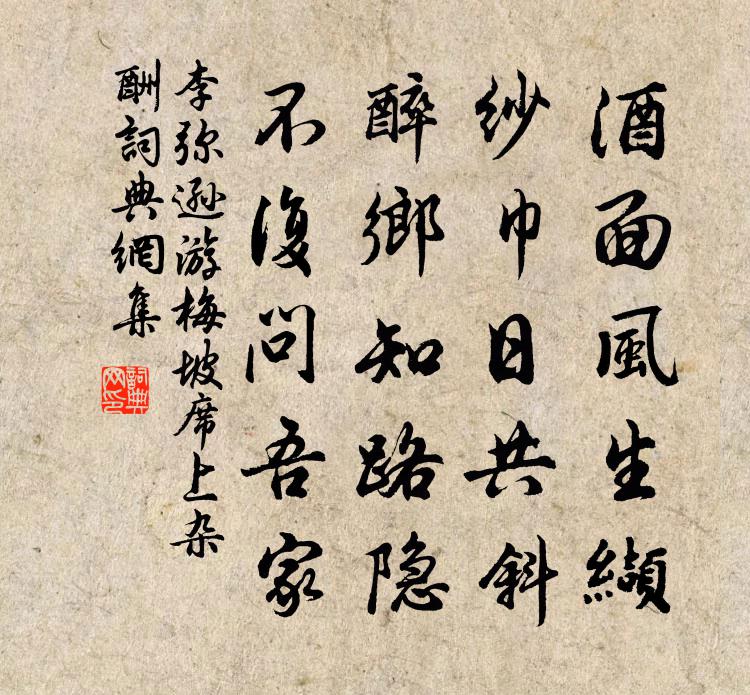 酒面風生纈
紗巾日共斜
醉鄉知路隐
不復問吾家
李弥遜游梅坡席上杂
酬詞典網集
詞典
网印